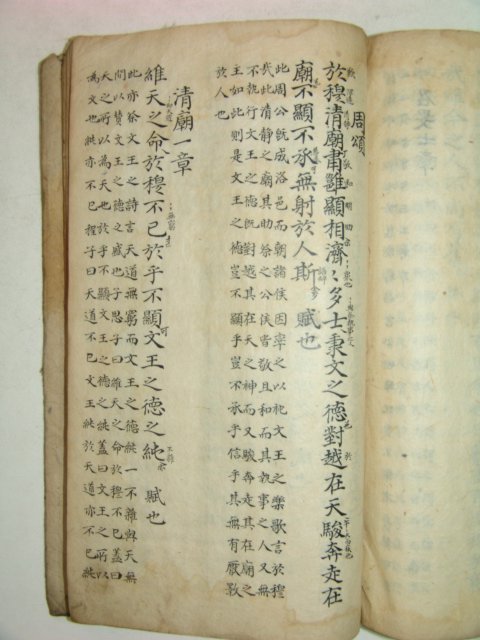 周頌
於穆清廟肅雝顯相濟〻多士秉文之德對越在天駿奔走在
廟不顯不承無射於人斯 賦也
此周公旣成洛邑而朝諸侯因率之以祀文王之樂歌言於穆
哉此清静之廟其助祭之公侯皆敬且和而其執事之人又無
不執行文王之德旣對越其在天之神而又駿奔走其在廟之
王如此則是文王之德豈不顯乎豈不承乎信乎其無有厭斁
於人也
清廟一章
維天之命於穆不已於乎不顯文王之德之純 賦也
此亦祭文王之詩言天道無窮而文王之德純一不雜與天無
間以贊文王之德之盛也子思子曰維天之命於穆不已蓋曰
天之所以為天也於乎不顯文王之德之純蓋曰文王之所以
為文也純亦不已程子曰天道不已文王純於天道亦不已純